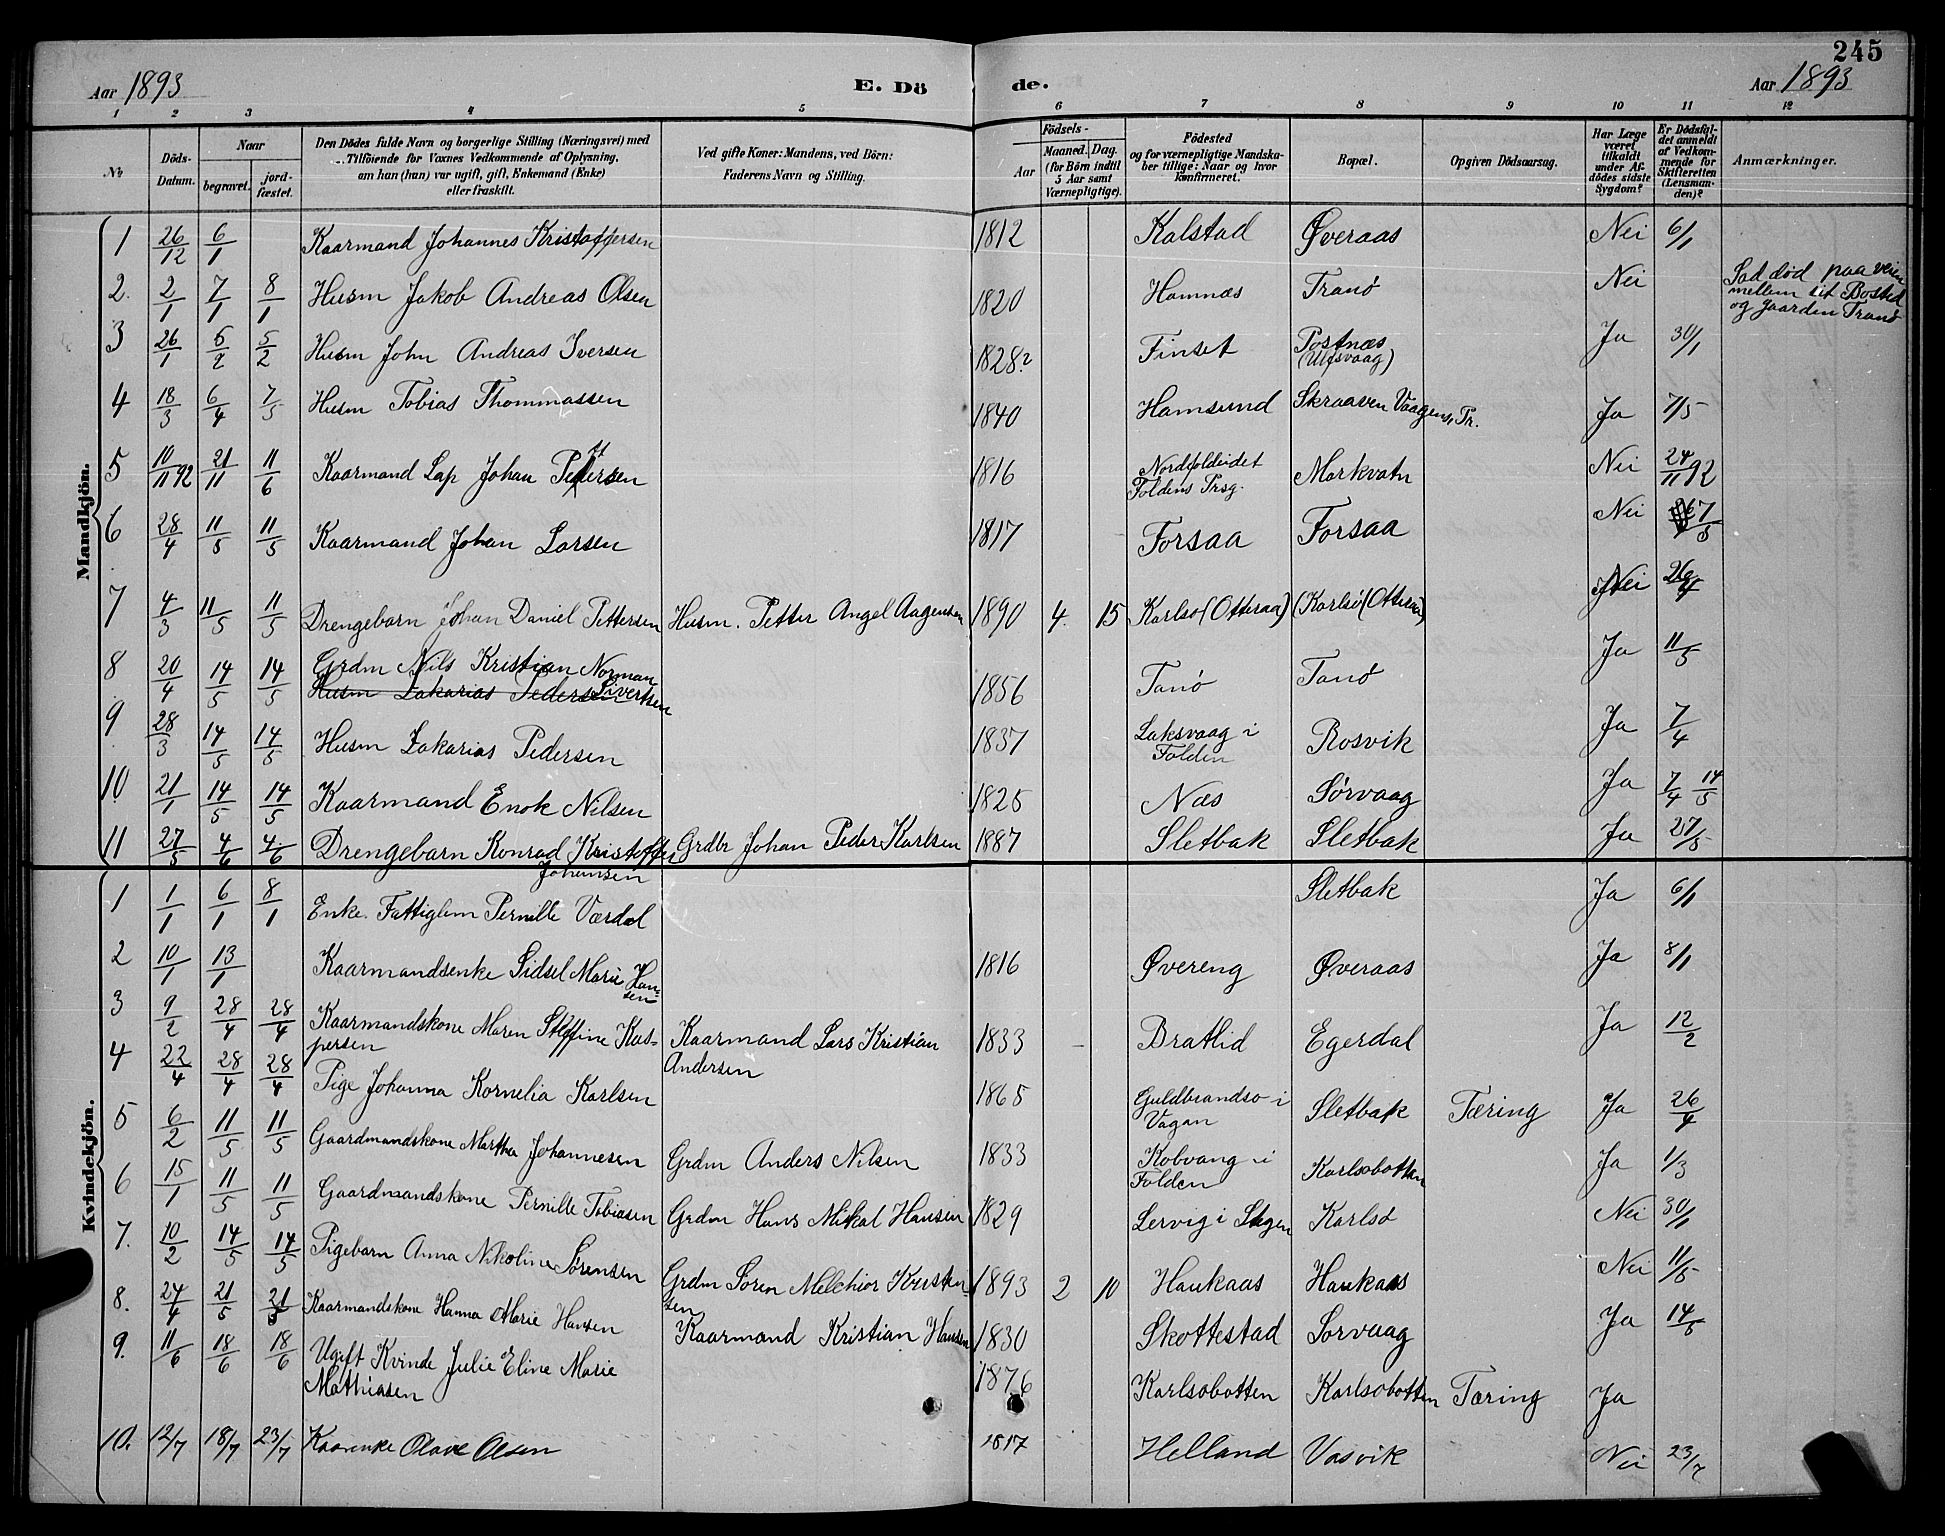 245
Aar 1893 E. Dö de. Aar 1893
1 2 3 4 5 6 7 8 9 10 11 12
No
Döds-Datum.
Naar
begravet. jord-fæstet.
Den Dödes fulde Navn og borgerlige Stilling (Næringsvei) med
Tilföiende for Voxnes Vedkommende af Oplysning,
om han (hun) var ugift, gift, Enkemand (Enke)
eller fraskilt.
Ved gifte Koner: Mandens, ved Börn:
Faderens Navn og Stilling.
Födsels-
Aar Maaned. Dag.
(for Börn indtil
5 Aar samt
Værnepligtige).
Födested
og for værnepligtige Mandska-
ber tillige: Naar og hvor
konfirmeret.
Bopæl.
Opgiven Dödsaarsag.
Har Læge
været
tilkaldt
under Af-
dödes sidste
Sygdom?
Er Dödsfal-
det anmeldt
af Vedkom-
mende for
Skifteretten
(Lensman-
den)?
Anmærkninger.
Mandkjön.
1 26/12 6/1 Kaarmand Johannes Kristoffersen 1812 Kalstad Øveraas Nei 6/1
2. 2/1 7/1 8/1 Husm Jakob Andreas Olsen 1820 Hamnæs Tranö Nei Sad död paa veien
mellem sit Bosted
og Gaarden Tranö
3 26/1 5/2 5/2 Husm John Andreas Iversen 1828? Finset Postnæs
(Ulfsvaag) Ja 30/1
4 18/3 6/4 7/5 Husm Tobias Thommassen 1840 Hamsund Skraaven Vaagens Pr. Ja 7/5
5 10/11 92 21/11 11/6 Kaarmand Lap Johan Pedersen 1816 Nordfoldeidet
Foldens Prsg. Markvatn Nei 24/11 92
6 28/4 11/5 11/5 Kaarmand Johan Larsen 1817 Forsaa Forsaa Nei 7/5
7 4/3 11/5 11/5 Drengebarn Johan Daniel Pettersen Husm. Petter Angel Aagensen 1890 4. 15 Karlsö (Otteraa) (Karlsö (Otteraa) Nei
8 20/4 14/5 14/5 Grdm Nils Kristian Norman
Sivertsen 1856 Tanö Tanö Ja 11/5
Husm Zakarias Pedersen
9 28/3 14/5 14/5 Husm Zakarias Pedersen 1837 Laksvaag i
Folden Rosvik Ja 7/4
10 21/1 14/5 14/5 Kaarmand Enok Nilsen 1825 Næs Sörvaag Ja 7/4 14/5
11 27/5 4/6 4/6 Drengebarn Konrad Kristoffer
Johansen Grdbr Johan Peder Karlsen 1887 Sletbak Sletbak Ja 27/5
Kvindekjön.
1 1/1 6/1 8/1 Enke. Fattiglem Pernille Værdal Sletbak Ja 6/1
2 10/1 13/1 Kaarmandsenke Sidsel Marie Han-
sen 1816 Øvereng Øveraas Ja 8/1
3 9/2 28/4 28/4 Kaarmandskone Maren Steffine Kas-
persen Kaarmand Lars Kristian
Andersen 1833 Bratlid Egerdal Ja 12/2
4 22/4 28/4 28/4 Pige Johanna Kornelia Karlsen 1865 Guldbrandsö i
Vagan Sletbak Tæring Ja 26/4
5 6/2 11/5 11/5 Gaardmandskone Martha Johannesen Grdm Anders Nilsen 1833 Kobvaag i
Folden Karlsobotten Ja 1/3
6 15/1 11/5 11/5 Gaardmandskone Pernille Tobiasen Grdm Hans Mikal Hansen 1829 Lervig i Stegen Karlsö Nei 30/1
7. 10/2 14/5 14/5 Pigebarn Anna Nikoline Sörensen Grdm Sören Melchior Kristen
sen 1893 2 10 Haukaas Haukaas Nei 11/5
8. 24/4 21/5 21/5 Kaarmandskone Hanna Marie Hansen Kaarmand Kristian Hansen 1830 Skottestad Sorvaag Ja 14/5
9. 11/6 18/6 18/6 Ugift Kvinde Julie Eline Marie
Mathiasen 1876 Karlsobotten Karlsobotten Tæring Ja
10. 12/7 18/7 23/7 Kaarenke Olave Olsen 1817 Helland Vasvik Nei 23/7